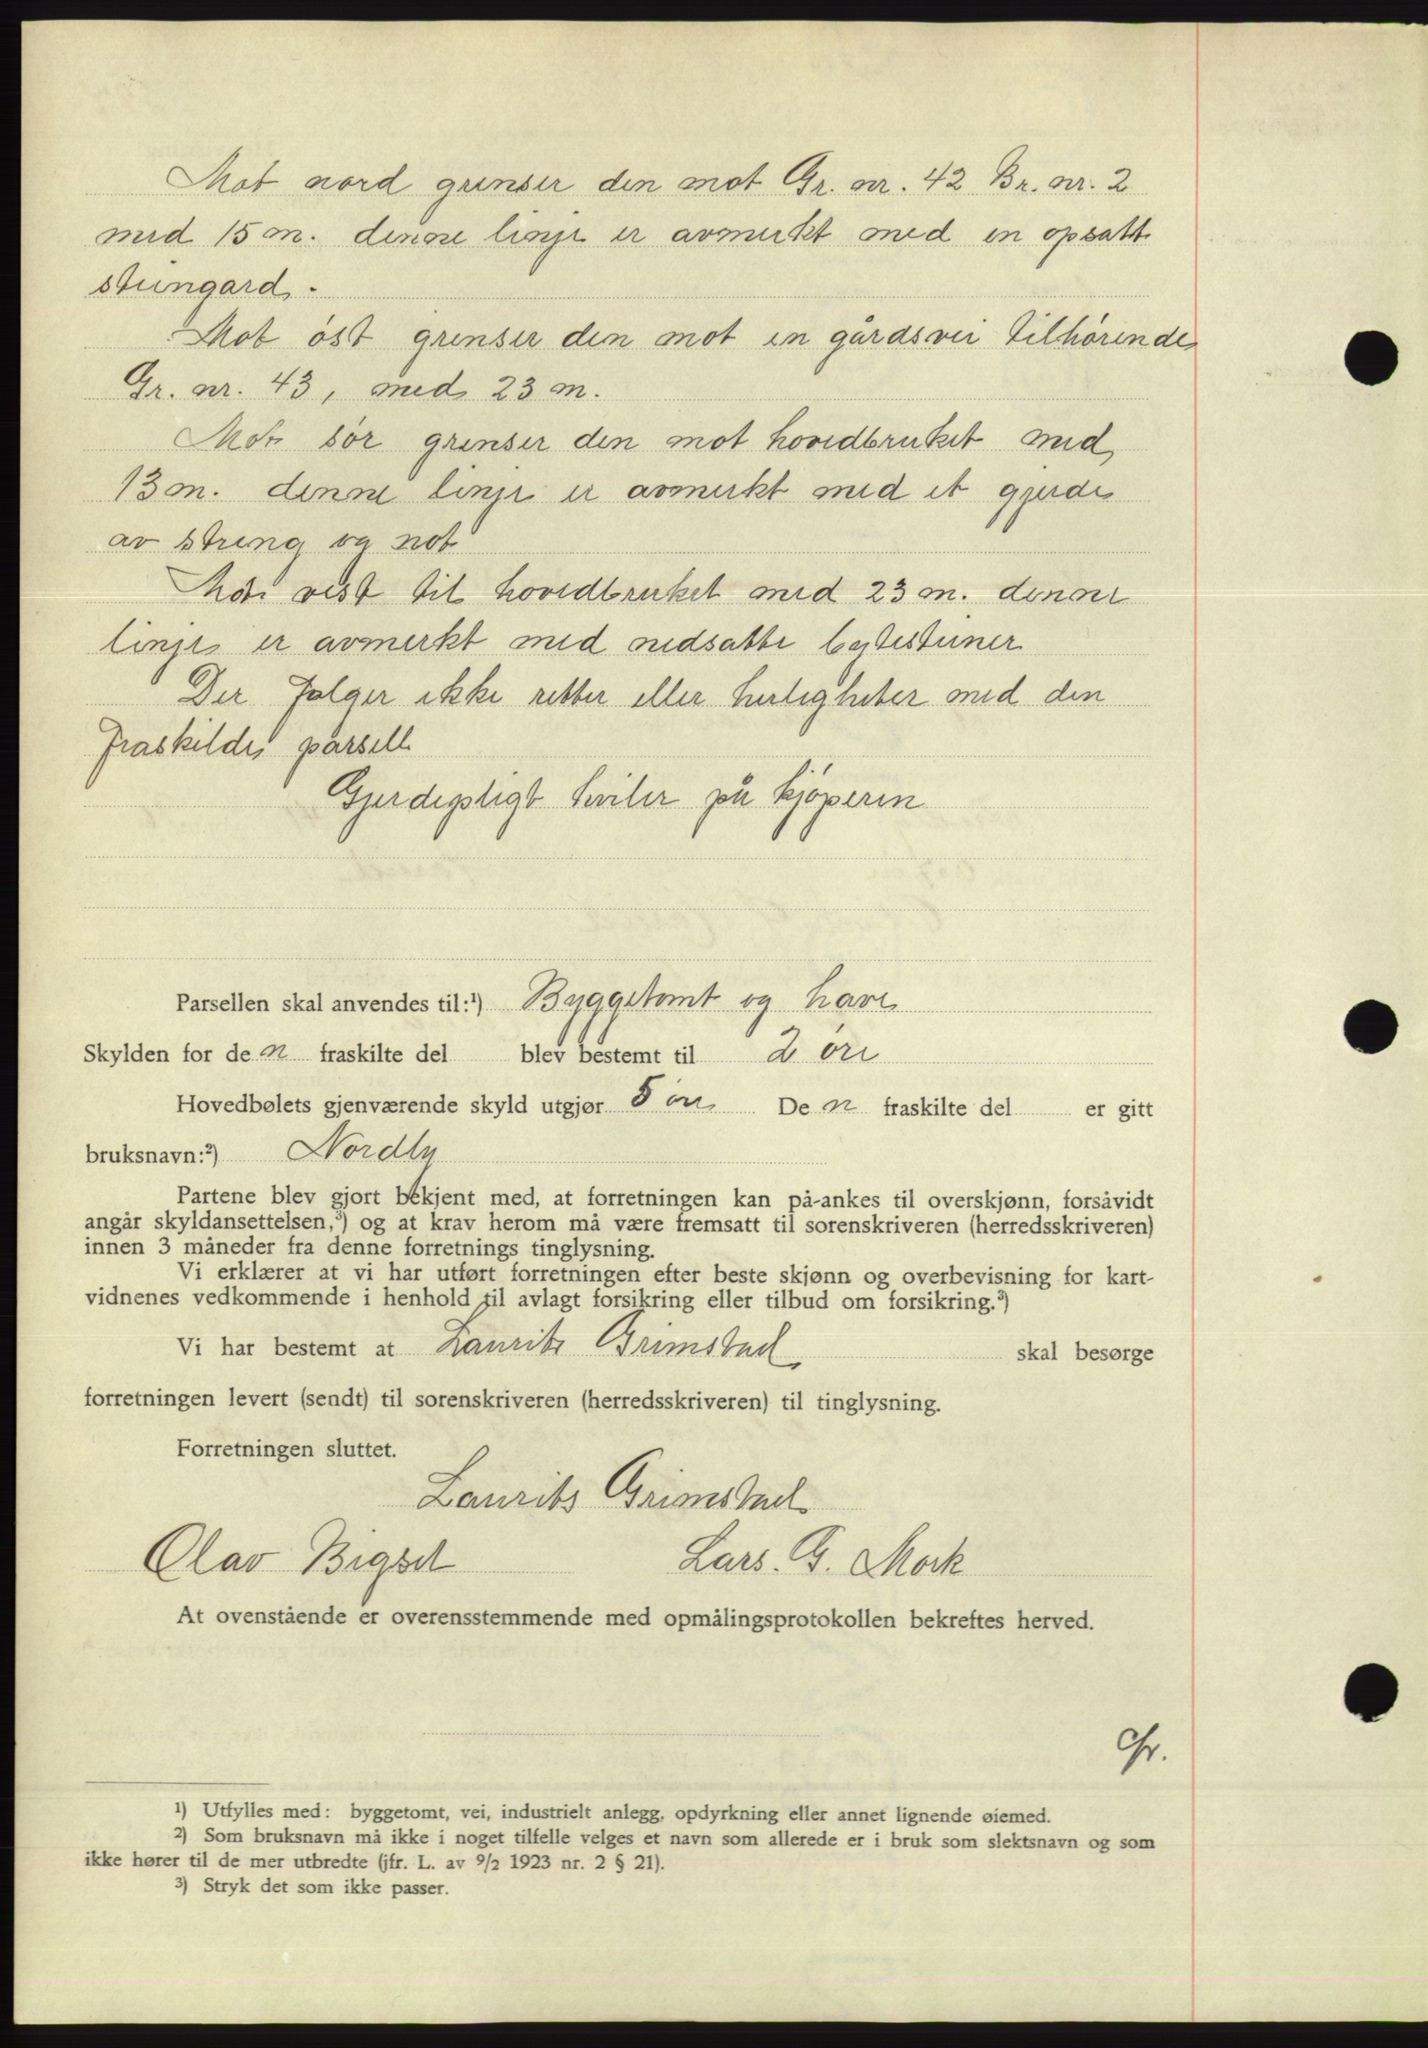 Mot nord grenser den mot Gr. nr. 42 Br. nr. 2
med 15 m. denne linje er avmerkt med en opsatt
steingard.
Mot øst grenser den mot en gårdsvei tilhørende
Gr. nr. 43, med 23 m.
Mot sør grenser den mot hovedbruket med
13 m. denne linje er avmerkt med et gjerde
av streng og not
Mot vest til hovedbruket med 23 m. denne
linje er avmerkt med nedsatte bytesteiner
Der følger ikke retter eller herligheter med den
fraskilde parsell
Gjerdepligt hviler på kjøperen
Parsellen skal anvendes til:¹) Byggetomt og have
Skylden for de n fraskilte del blev bestemt til 2 øre
Hovedbølets gjenværende skyld utgjør 5 øre De n fraskilte del er gitt
bruksnavn:²) Nordly
Partene blev gjort bekjent med, at forretningen kan på-ankes til overskjønn, forsåvidt
angår skyldansettelsen,³) og at krav herom må være fremsatt til sorenskriveren (herredsskriveren)
innen 3 måneder fra denne forretnings tinglysning.
Vi erklærer at vi har utført forretningen efter beste skjønn og overbevisning for kart-
vidnenes vedkommende i henhold til avlagt forsikring eller tilbud om forsikring.³)
Vi har bestemt at Laurits Grimstad skal besørge
forretningen levert (sendt) til sorenskriveren (herredsskriveren) til tinglysning.
Forretningen sluttet.
Laurits Grimstad
Olav Bigset Lars. G. Mork
At ovenstående er overensstemmende med opmålingsprotokollen bekreftes herved.
¹) Utfylles med: byggetomt, vei, industrielt anlegg, opdyrkning eller annet lignende øiemed.
²) Som bruksnavn må ikke i noget tilfelle velges et navn som allerede er i bruk som slektsnavn og som
ikke hører til de mer utbredte (jfr. L. av 9/2 1923 nr. 2 § 21).
³) Stryk det som ikke passer.